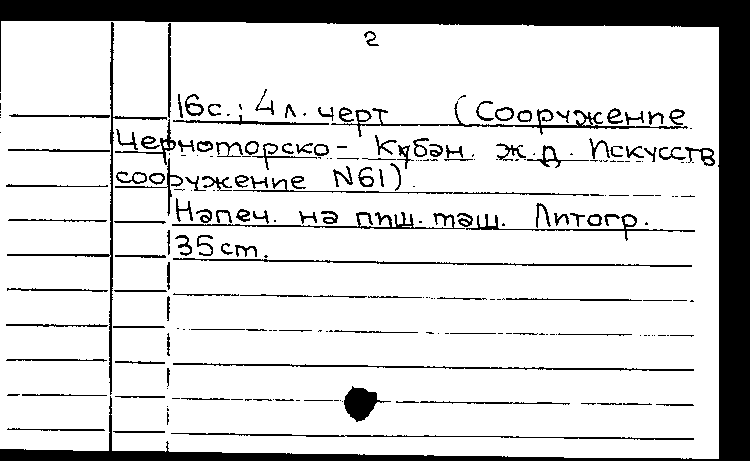 2
16с.; 4 л. черт (Сооружение
Черноморско - Кубан. ж.д. Искусств
сооружение N61)
Напеч. на пиш. маш. Литогр.
35 см.